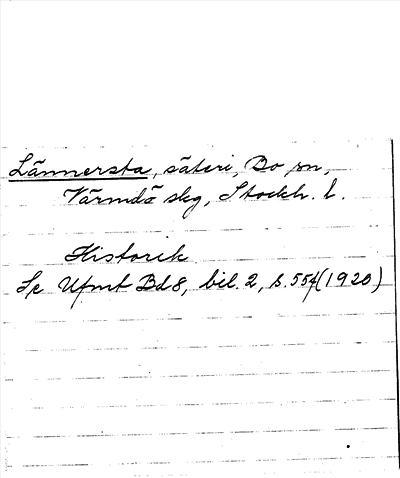 Lännersta, säteri, Bo sn,
Värmdö skg, Stockh. l.
Historik
Se Upmt Bd 8, bil. 2, s. 554 (1920)